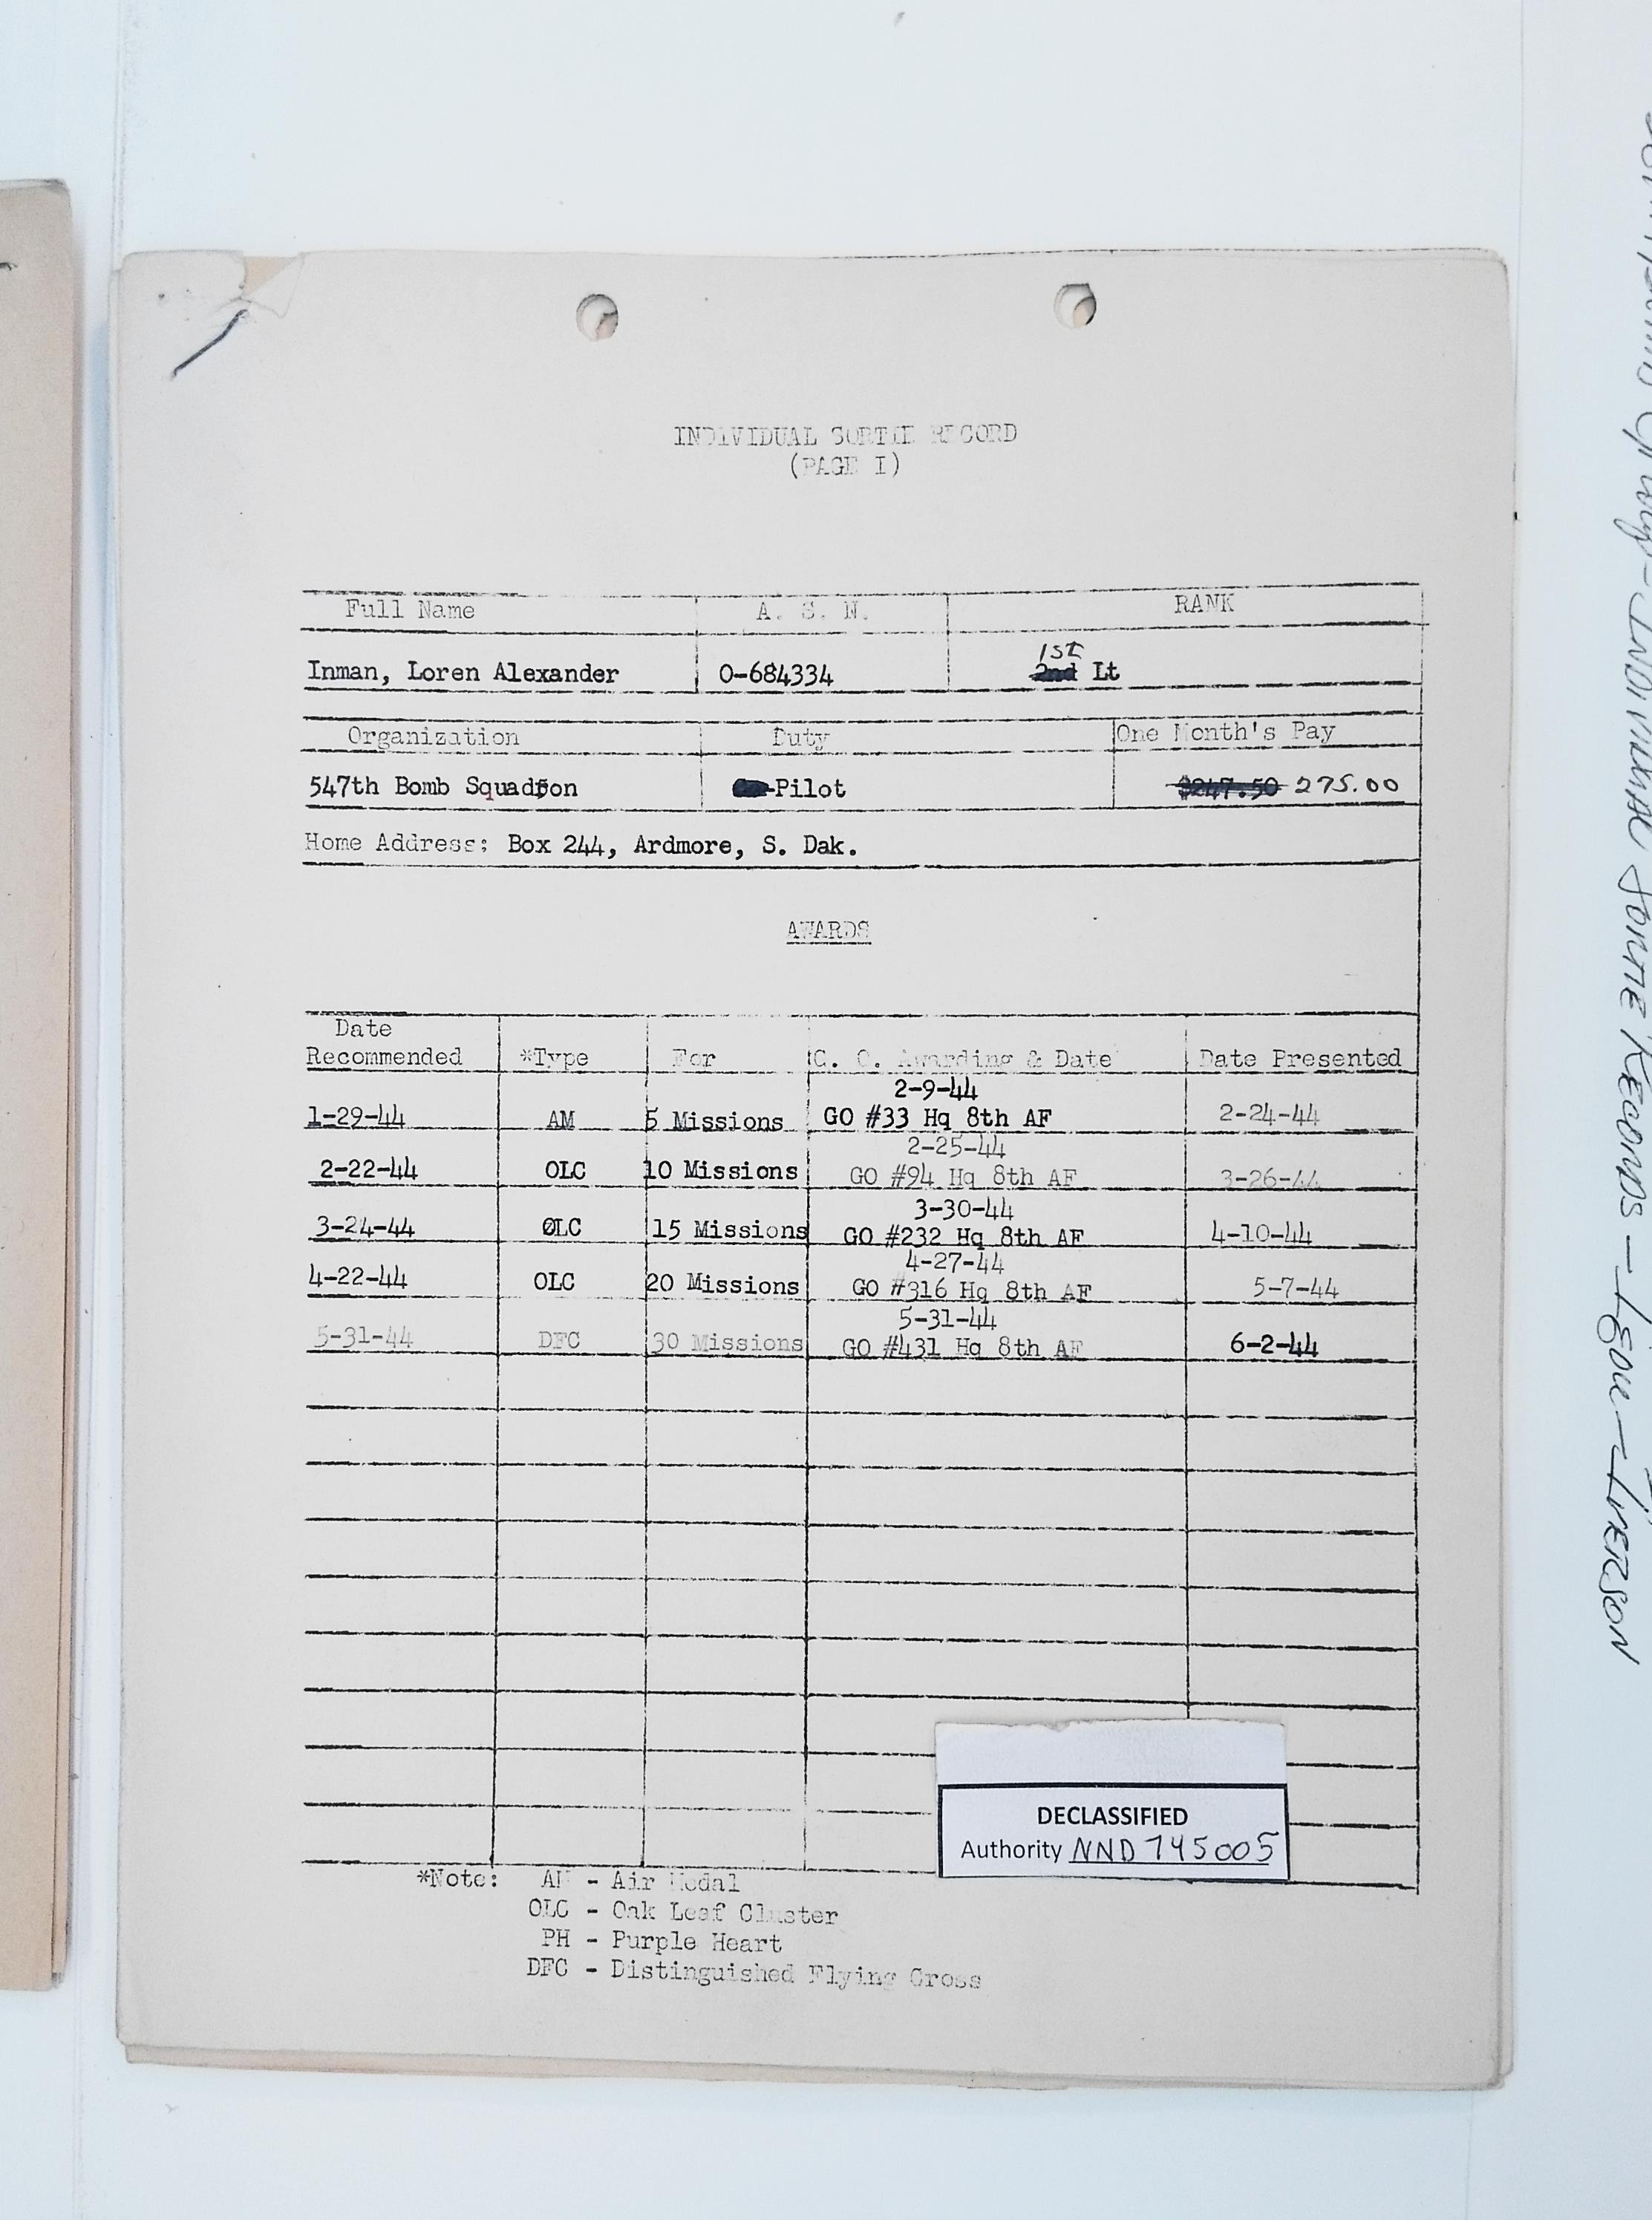 INDIVIDUAL SORTIE RECORD
(PAGE I)
Full Name A. S. N. RANK
1st
Inman, Loren Alexander 0-684334 2nd Lt
Organization Duty One Month's Pay
547th Bomb Squadron Pilot $247.50 275.00
Home Address: Box 244, Ardmore, S. Dak.
AWARDS
Date
Recommended *Type For G. O. Awarding & Date Date Presented
2-9-44
1-29-44 AM 5 Missions GO #33 Hq 8th AF 2-24-44
2-25-44
2-22-44 OLC 10 Missions GO #94 Hq 8th AF 3-26-44
3-30-44
3-24-44 OLC 15 Missions GO #232 Hq 8th AF 4-10-44
4-27-44
4-22-44 OLC 20 Missions GO #316 Hq 8th AF 5-7-44
5-31-44
5-31-44 DFC 30 Missions GO #431 Hq 8th AF 6-2-44
DECLASSIFIED
Authority NND 745005
*Note: AM - Air Medal
OLC - Oak Leaf Cluster
PH - Purple Heart
DFC - Distinguished Flying Cross
Individual Sortie Records -